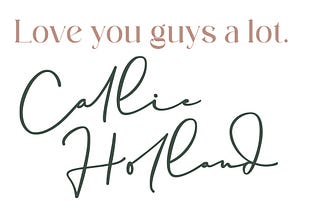 Love you guys a lot.
Callie
Holland